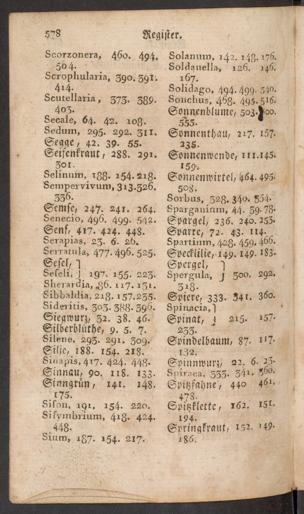 578 Register.
Scorzonera, 460. 494.
504.
Scrophularia, 390. 391.
414.
Scutellaria, 373. 389.
403.
Secale, 64. 42. 108.
Sedum, 295. 292. 311.
Segge, 42. 39. 55.
Seifenkraut, 288. 291.
301.
Selinum, 188. 154. 218.
Sempervivum, 313. 326.
336.
Semse, 247. 241. 264.
Senecio, 496. 499. 542.
Senf, 417. 424. 448.
Serapias, 23. 6. 26.
Serratula, 477. 496. 525.
Sesel, }
Seseli, } 197. 155. 223.
Sherardia, 86. 117. 131.
Sibbaldia, 218. 157. 235.
Sideritis, 303. 388. 396.
Siegwurz, 32. 38. 46.
Silberblüthe, 9. 5. 7.
Silene, 293. 291. 309.
Silje, 188. 154. 218.
Sinapis, 417. 424. 448.
Sinnau, 90. 118. 133.
Sinngrün, 141. 148.
175.
Sison, 191. 154. 220.
Sisymbrium, 418. 424.
448.
Sium, 187. 154. 217.
Solanum, 142. 148. 176.
Soldanella, 126. 146.
167.
Solidago, 494. 499. 540.
Sonchus, 468. 495. 516.
Sonnenblume, 503.
555.
Sonnenthau, 217. 157.
235.
Sonnenwende, 111. 145.
159.
Sonnenwirtel, 464. 495.
508.
Sorbus, 328. 340. 354.
Sparganium, 44. 39. 78.
Spargel, 236. 240. 255.
Sparre, 72. 43. 114.
Spartium, 428. 459. 466.
Specklilie, 149. 149. 183.
Spergel, }
Spergula, } 300. 292.
318.
Spiere, 333. 341. 360.
Spinacia, }
Spinat, } 215. 157.
233.
Spindelbaum, 87. 117.
132.
Spinnwurz, 22. 6. 23.
Spiraea, 333. 341. 360.
Spitzfahne, 440 461.
478.
Spitzklette, 162. 151.
194.
Springkraut, 152. 149.
186.